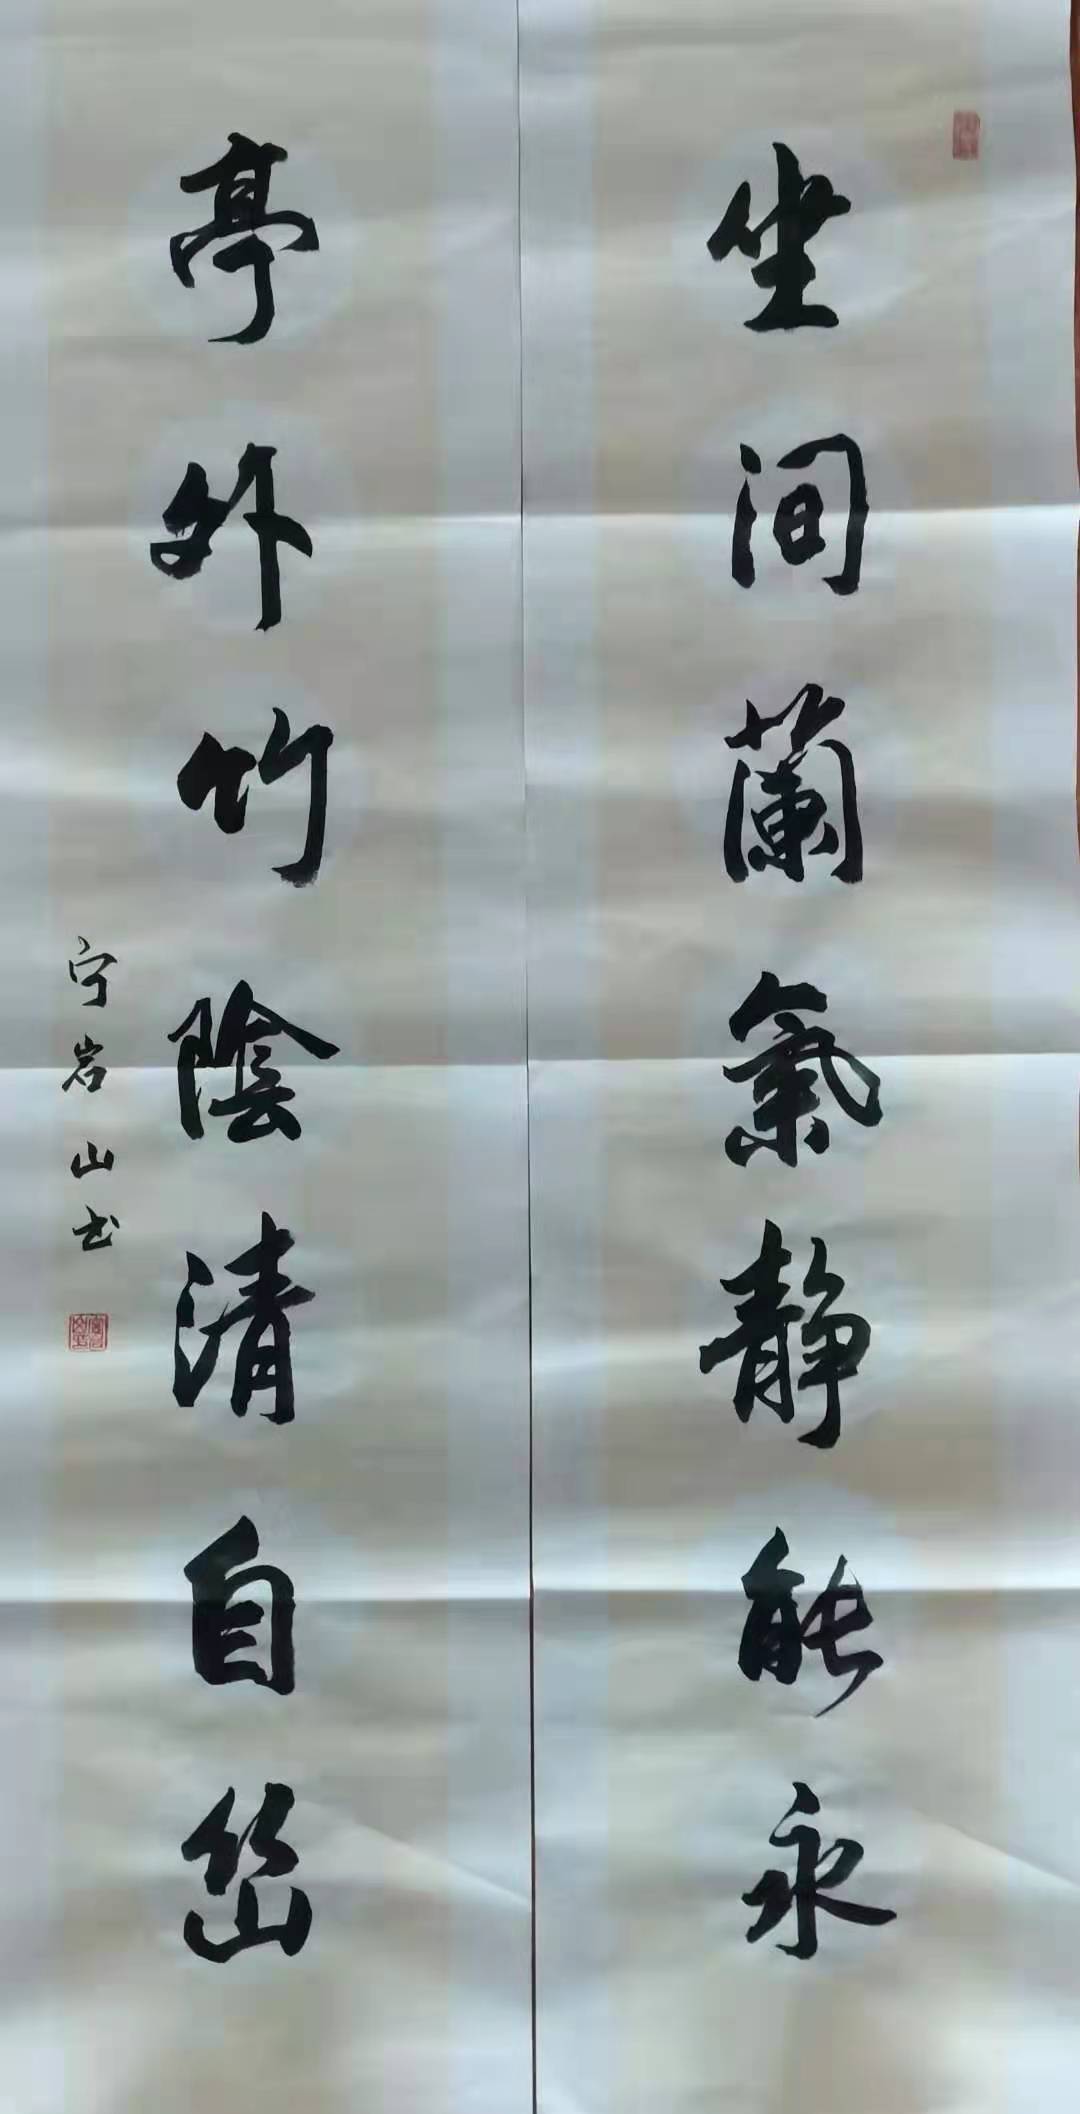 坐间蘭氣静能永
亭外竹陰清自幽
宁岩山书